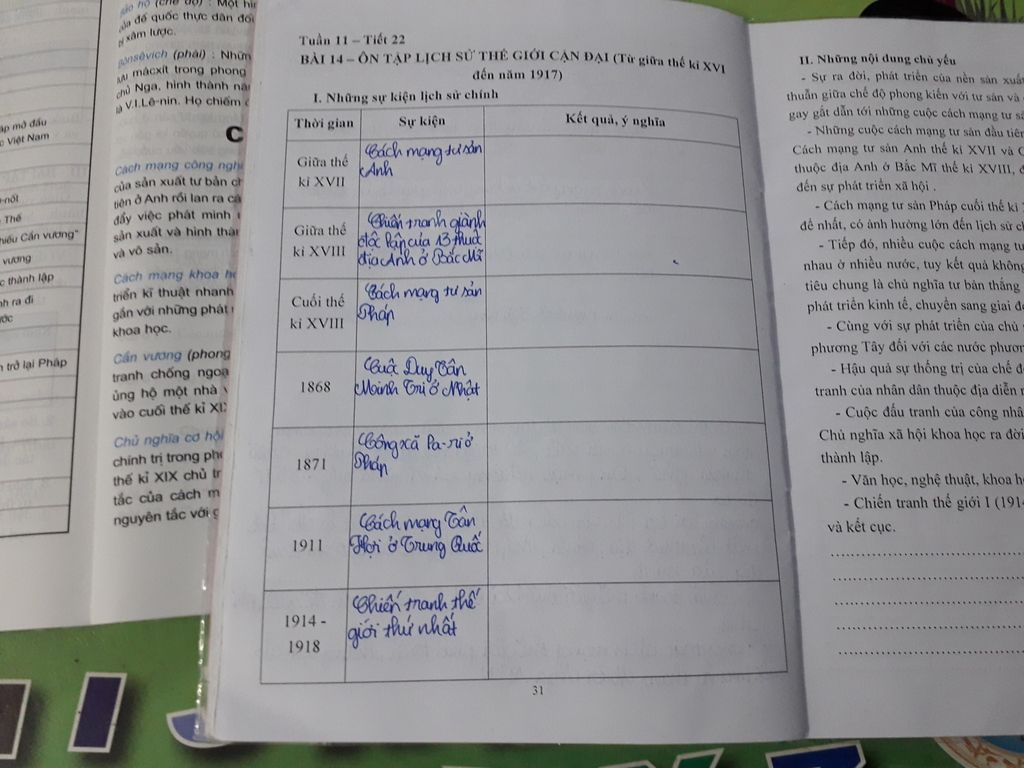 bảo hộ (chế độ) : Một hìn
của đế quốc thực dân đối
bị xâm lược.
Bônsêvích (phái) : Nhữn
lưu mácxít trong phong
chủ Nga, hình thành nă
là V.I.Lê-nin. Họ chiếm
C
Cách mạng công nghi
của sản xuất tư bản ch
tiên ở Anh rồi lan ra cá
đẩy việc phát minh
sản xuất và hình thàn
và vô sản.
Cách mạng khoa họ
triển kĩ thuật nhanh
gắn với những phát
khoa học.
Cần vương (phong
tranh chống ngoạ
ủng hộ một nhà
vào cuối thế kỉ XIX
Chủ nghĩa cơ hội
chính trị trong pho
thế kỉ XIX chủ tr
tắc của cách m
nguyên tắc với g
áp mở đầu
c Việt Nam
-nốt
Thế
hiếu Cần vương"
vương
c thành lập
nh ra đi
ớc
n trở lại Pháp
Tuần 11 – Tiết 22
BÀI 14 – ÔN TẬP LỊCH SỬ THẾ GIỚI CẬN ĐẠI (Từ giữa thế kỉ XVI
đến năm 1917)
I. Những sự kiện lịch sử chính
Thời gian Sự kiện Kết quả, ý nghĩa
Giữa thế kỉ XVII
Cách mạng tư sản
Anh
Giữa thế kỉ XVIII
Chiến tranh giành
độc lập của 13 thuộc
địa Anh ở Bắc Mĩ
Cuối thế kỉ XVIII
Cách mạng tư sản
Pháp
1868
Cuộc Duy Tân
Minh Trị ở Nhật
1871
Công xã Pa-ri ở
Pháp
1911
Cách mạng Tân
Hợi ở Trung Quốc
1914 - 1918
Chiến tranh thế
giới thứ nhất
31
II. Những nội dung chủ yếu
- Sự ra đời, phát triển của nền sản xuất
thuẫn giữa chế độ phong kiến với tư sản và
gay gắt dẫn tới những cuộc cách mạng tư sả
- Những cuộc cách mạng tư sản đầu tiên
Cách mạng tư sản Anh thế kỉ XVII và C
thuộc địa Anh ở Bắc Mĩ thế kỉ XVIII, đ
đến sự phát triển xã hội .
- Cách mạng tư sản Pháp cuối thế kỉ
để nhất, có ảnh hưởng lớn đến lịch sử ch
- Tiếp đó, nhiều cuộc cách mạng tư
nhau ở nhiều nước, tuy kết quả không
tiêu chung là chủ nghĩa tư bản thắng
phát triển kinh tế, chuyển sang giai đo
- Cùng với sự phát triển của chủ
phương Tây đối với các nước phươn
- Hậu quả sự thống trị của chế đ
tranh của nhân dân thuộc địa diễn r
- Cuộc đấu tranh của công nhâ
Chủ nghĩa xã hội khoa học ra đời
thành lập.
- Văn học, nghệ thuật, khoa h
- Chiến tranh thế giới I (1914
và kết cục.